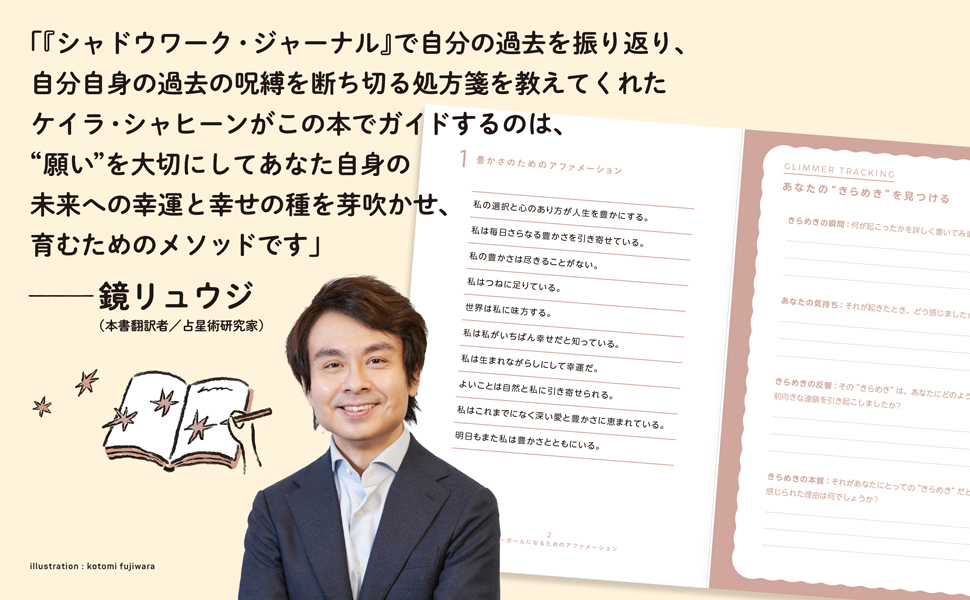 「『シャドウワーク・ジャーナル』で自分の過去を振り返り、
自分自身の過去の呪縛を断ち切る処方箋を教えてくれた
ケイラ・シャヒーンがこの本でガイドするのは、
“願い”を大切にしてあなた自身の
未来への幸運と幸せの種を芽吹かせ、
育むためのメソッドです」
──鏡リュウジ
（本書翻訳者／占星術研究家）
illustration : kotomi fujiwara
1 豊かさのためのアファメーション
私の選択と心のあり方が人生を豊かにする。
私は毎日さらなる豊かさを引き寄せている。
私の豊かさは尽きることがない。
私はつねに足りている。
世界は私に味方する。
私は私がいちばん幸せだと知っている。
私は生まれながらしにして幸運だ。
よいことは自然と私に引き寄せられる。
私はこれまでになく深い愛と豊かさに恵まれている。
明日もまた私は豊かさとともにいる。
2
ーガールになるためのアファメーション
GLIMMER TRACKING
あなたの“きらめき”を見つける
きらめきの瞬間：何が起こったかを詳しく書いてみま
あなたの気持ち：それが起きたとき、どう感じました
きらめきの反響：その“きらめき”は、あなたにどのよう
前向きな連鎖を引き起こしましたか？
きらめきの本質：それがあなたにとっての“きらめき”だと
感じられた理由は何でしょうか？